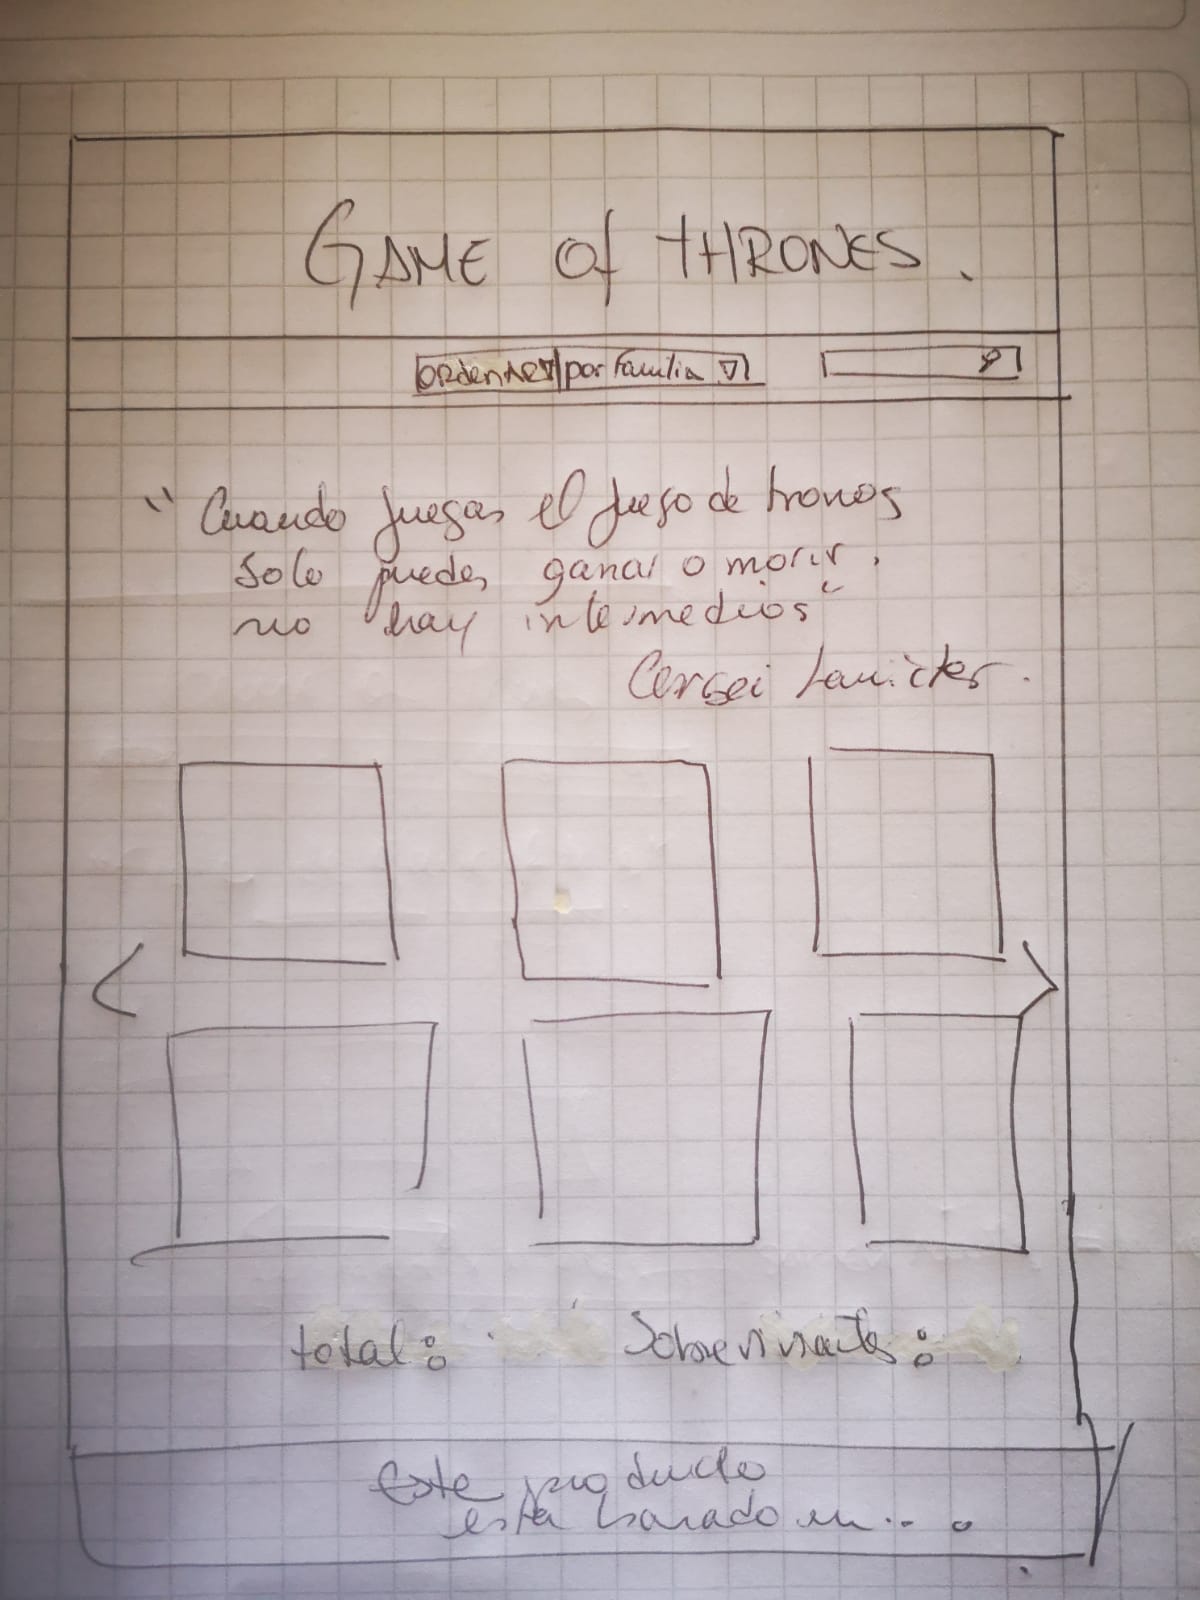 GAME Of tHRONES.
ORdenAR por Familia
"Cuando juegas el juego de tronos
Solo puedes ganar o morir.
no hay intermedios"
Cersei Lanister.
total: Sobrevivientes:
Este producto
esta basado en...